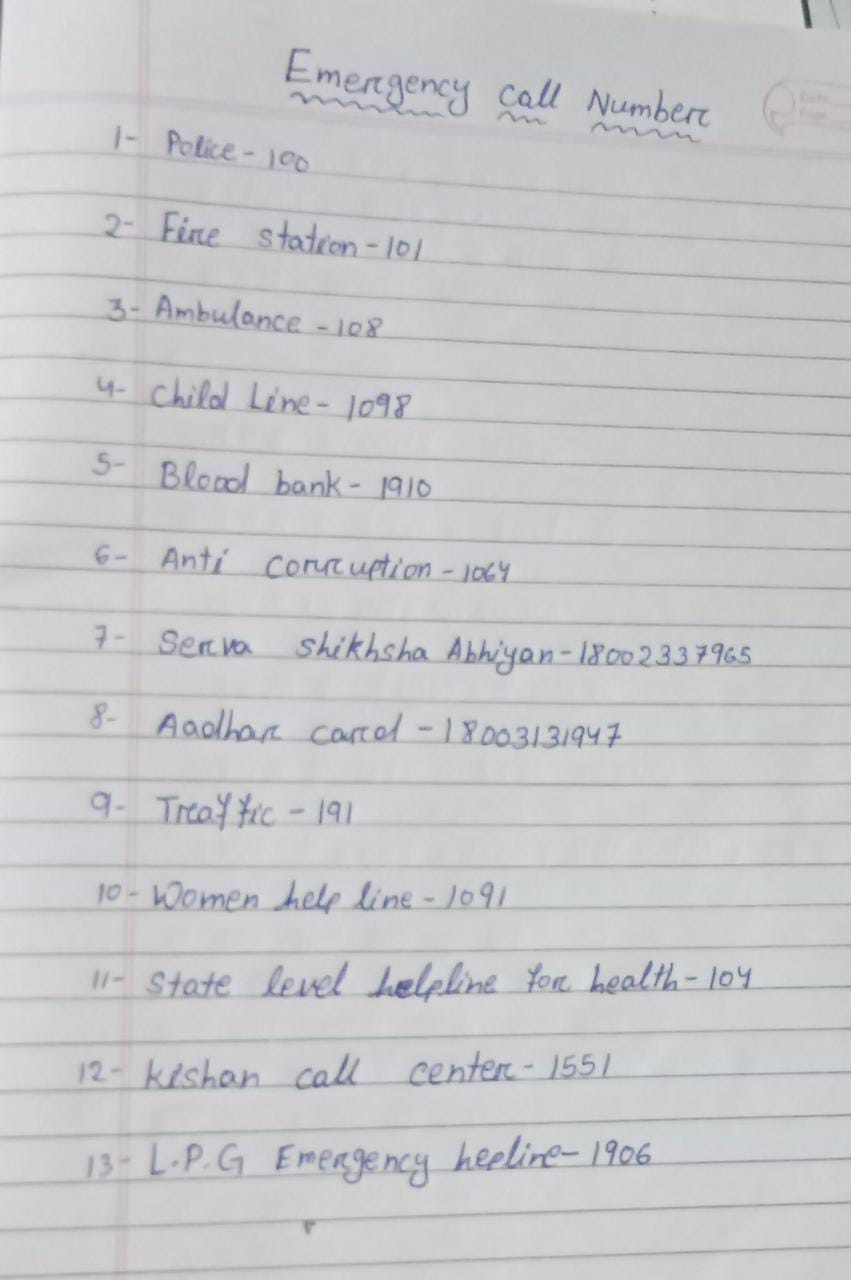 Emergency call Number
1- Police - 100
2- Fire station - 101
3- Ambulance - 108
4- Child Line - 1098
5- Blood bank - 1910
6- Anti corruption - 1064
7- Serva shikhsha Abhiyan - 18002337965
8- Aadhar card - 18003131947
9- Traffic - 191
10- Women help line - 1091
11- State level helpline for health - 104
12- kishan call center - 1551
13- L.P.G Emergency hepline - 1906